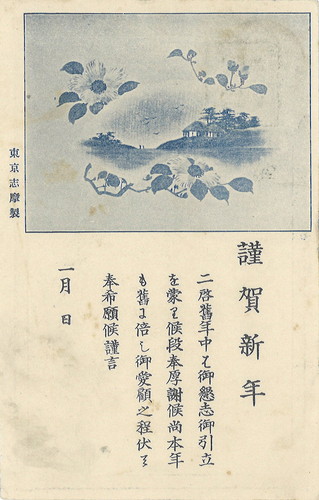 東京志摩製
謹賀新年
二啓舊年中は御懇志御引立
を蒙り候段奉厚謝候尚本年
も舊に倍し御愛顧之程伏て
奉希願候謹言
一月 日